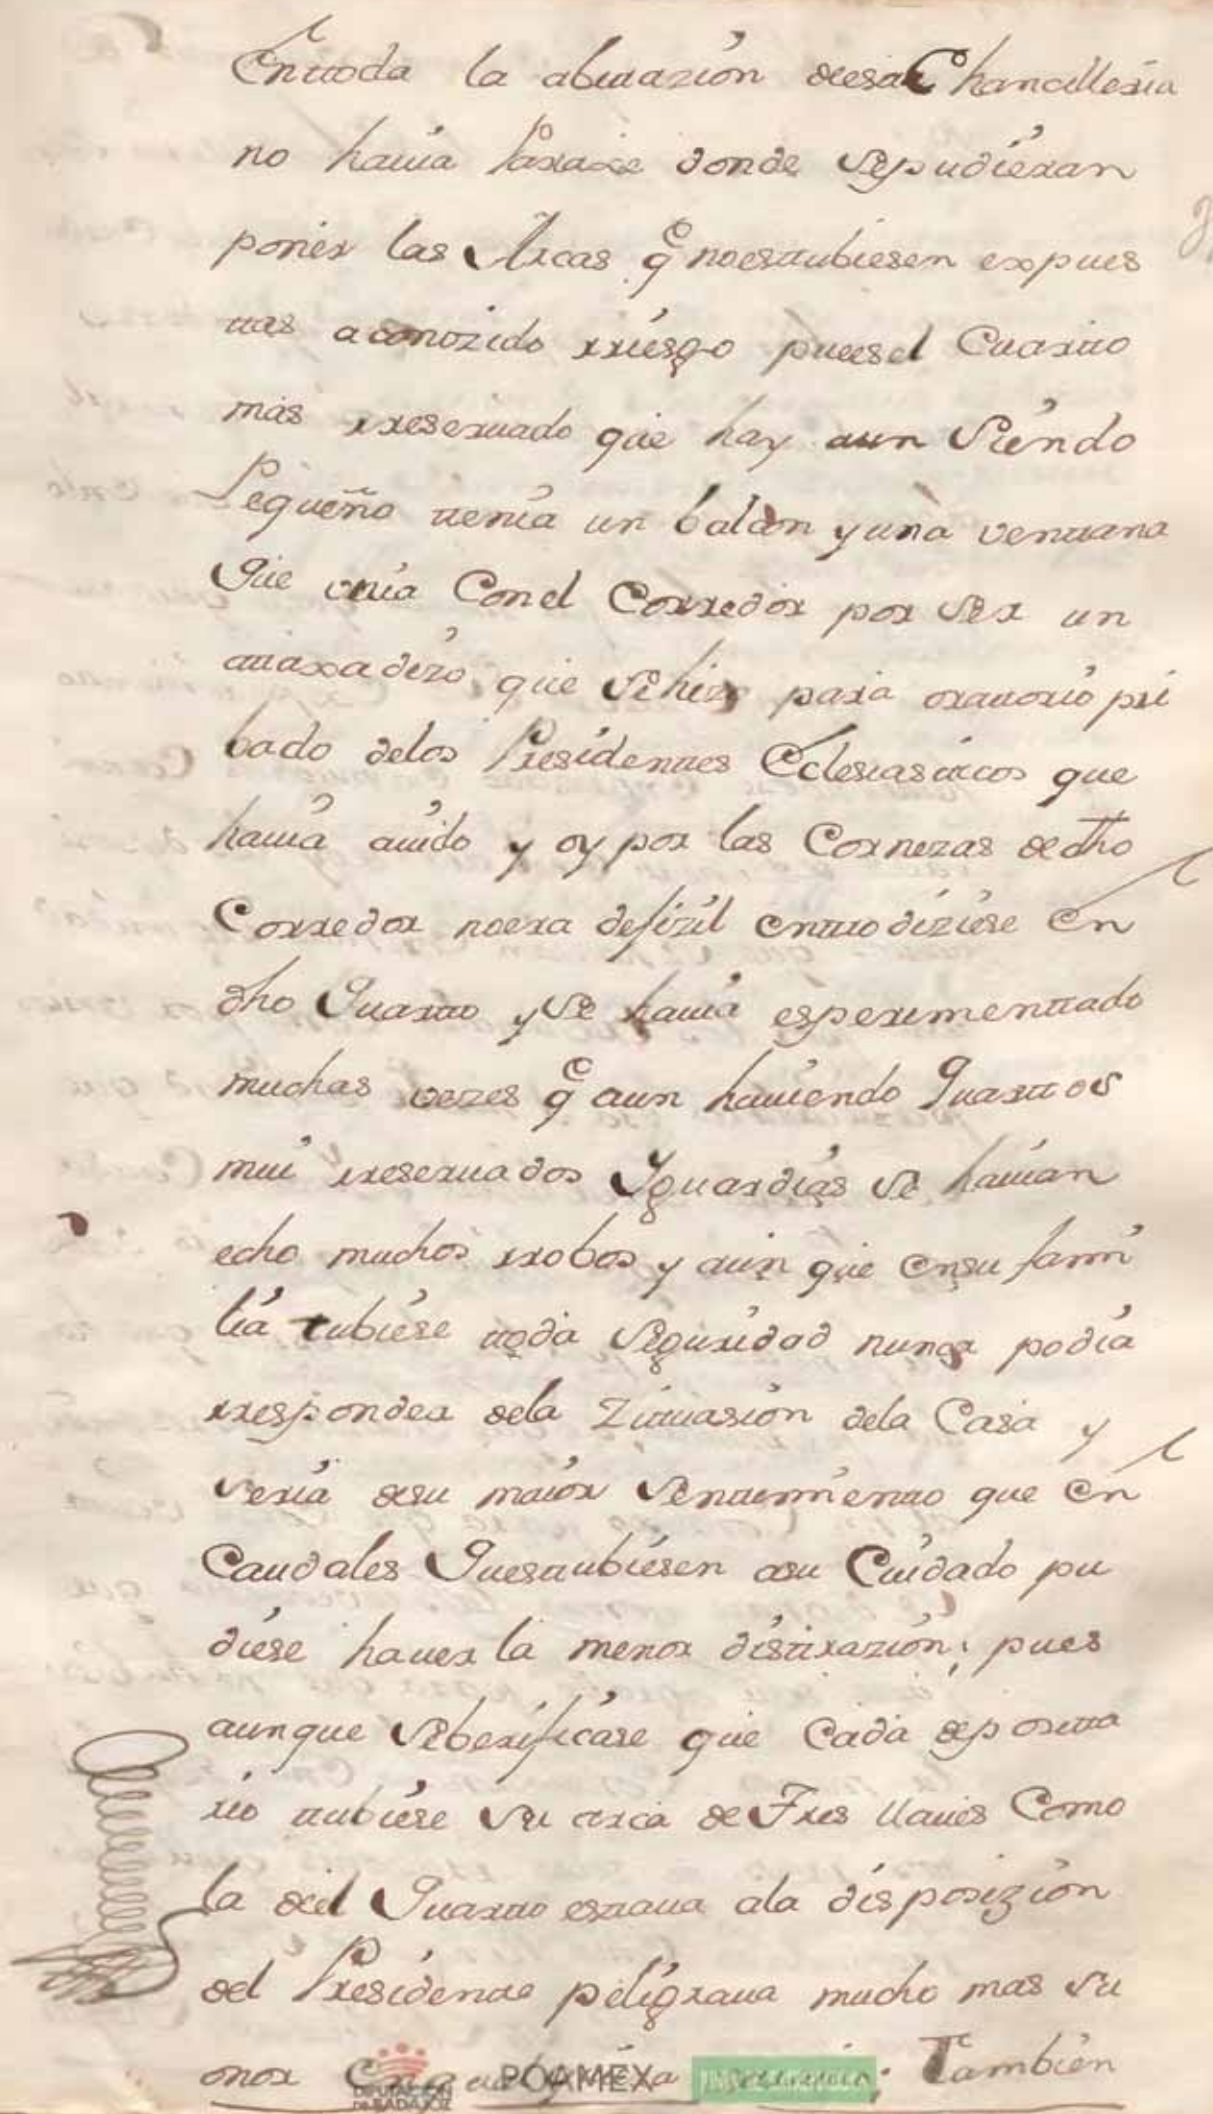 Entoda la abitazion deesa Chancilleria
no havia Paraxe donde sepudieran
poner las Arcas q̃ noestubiesen expues
tas aconozido rriesgo puesel Cuarto
mas rreservado que hay aun Siendo
Pequeño tenia un balcon y una ventana
que unia Conel Corredor por ser un
ataxadizo que se hizo para oratorio pri
bado delos Presidentes Eclesiasticos que
havia avido y oy por las Cornezas de dho
Corredor noera defizil entrodiziese En
dho Quarto y Se havia esperimentado
muchas vezes q̃ aun haviendo Quartos
mui rreservados Y guardias se havian
echo muchos rrobos y aun que ensu fami
lia tubiese toda Seguridad nunca podia
rresponder dela Zituasion dela Casa y
seria desu maior Sentimiento que En
Caudales Questubiesen asu Cuidado pu
diese haver la menor distrazion; pues
aunque Sebeificase que Cada deposita
rio tubiese su arca de Tres llaves Como
la deel Quarto estava ala disposizion
del Presidente peligrava mucho mas su
onor En Tambien
DIPUTACIÓN
DE BADAJOZ
POAMEX